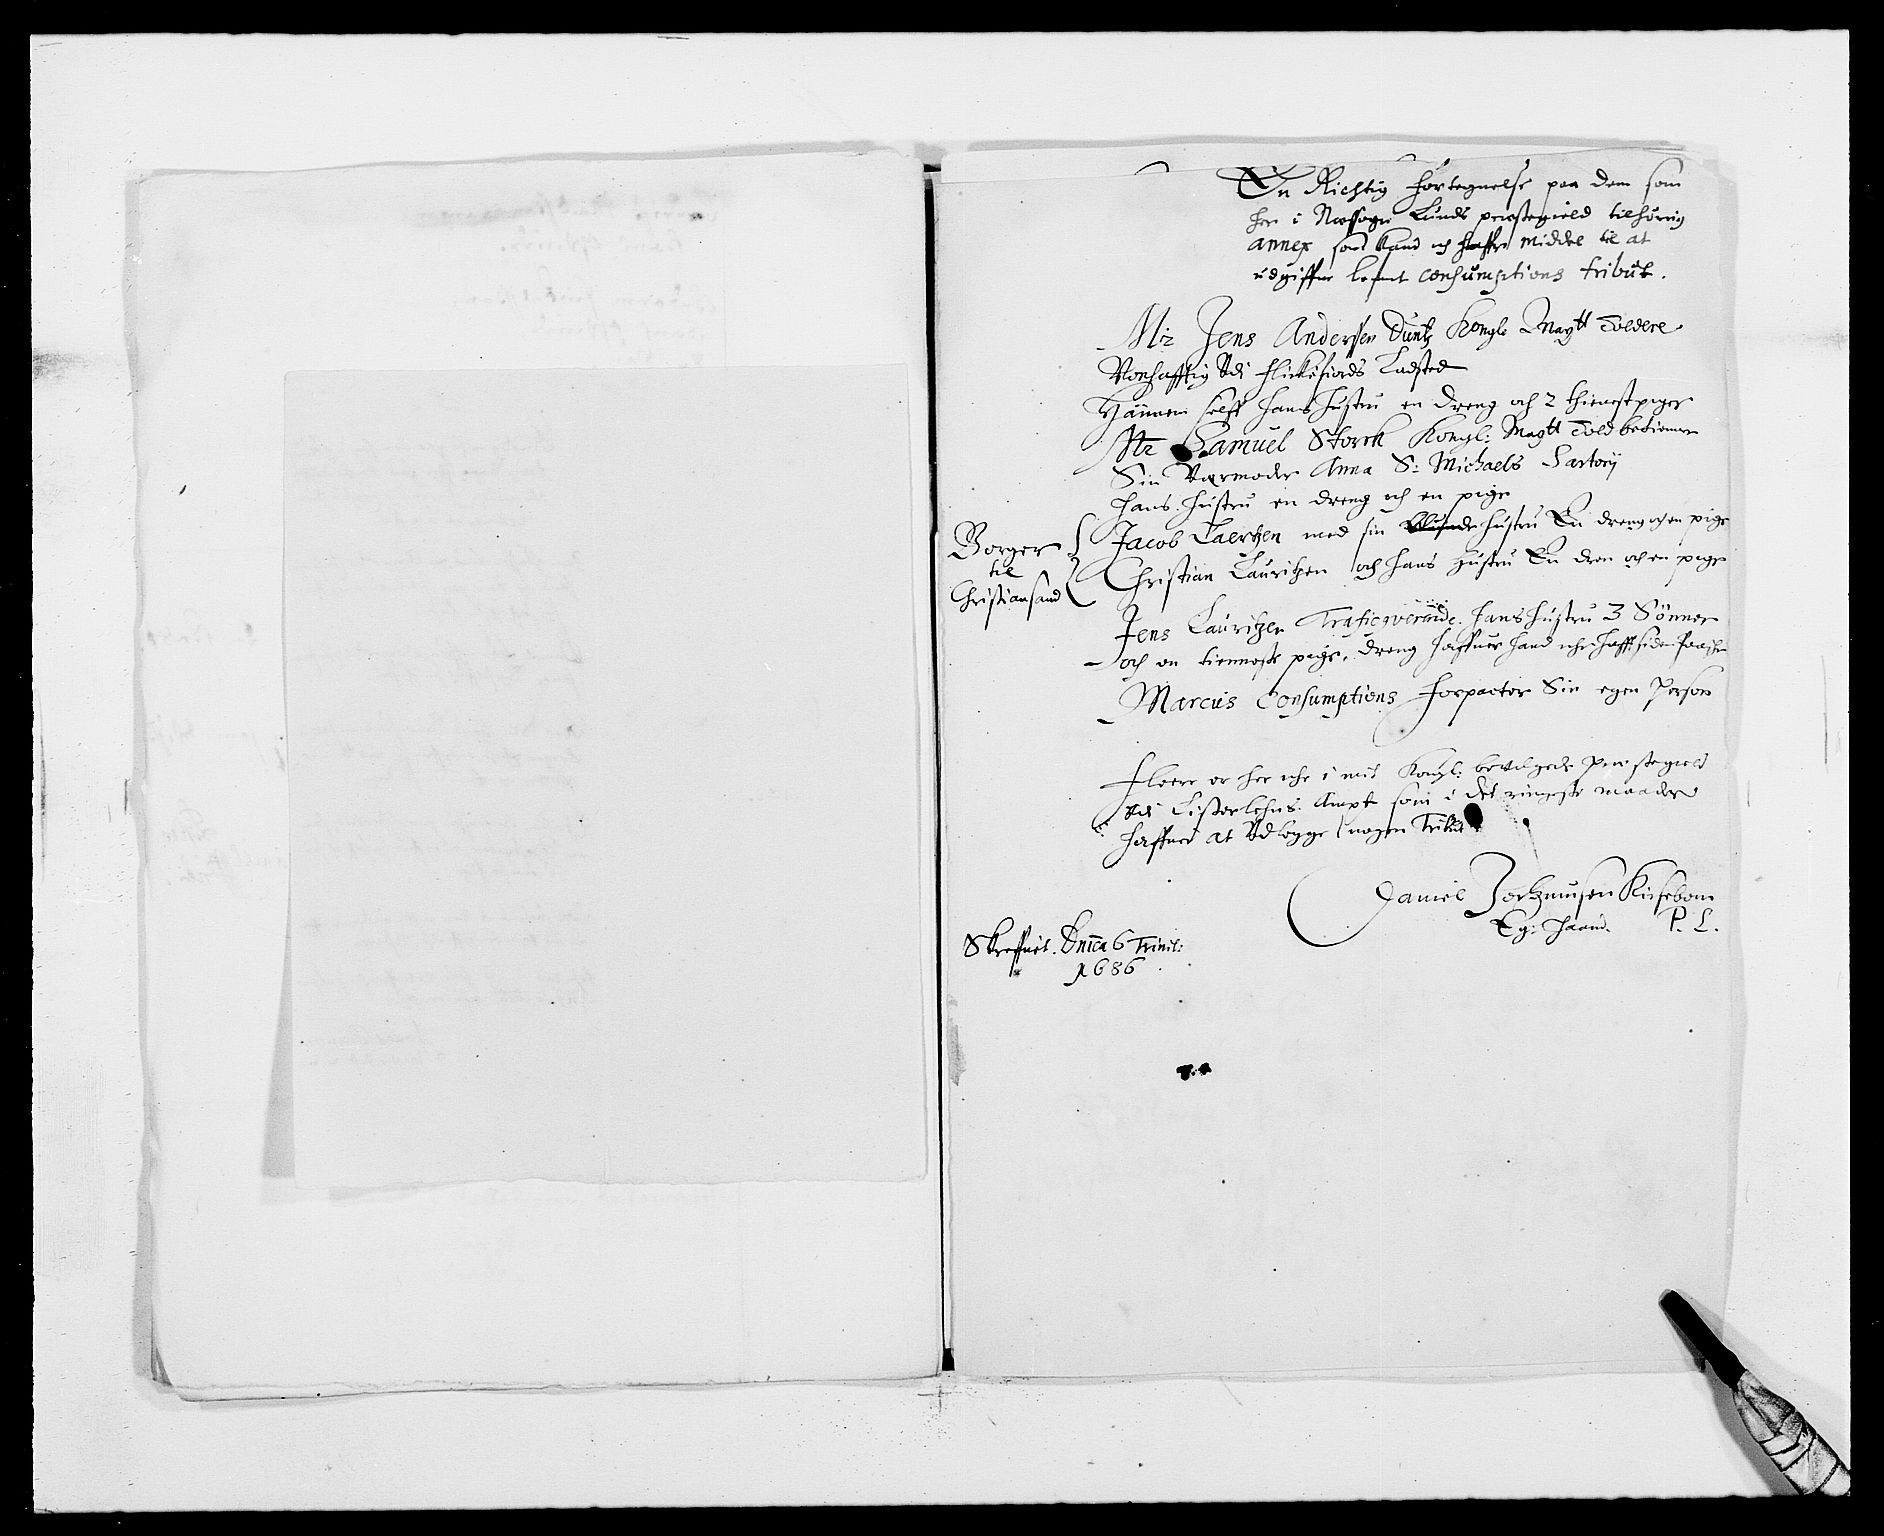 En Richtig Fortegnelse paa dem som
her i Næssogn Lunds præstegield tilhørrig
annex som kand och haffue middel til at
udgiffue consumptions tribut.
Mr Jens Andersen Duntz Kongl Maytt Toldere
Vonhafftig Vdi Flickefiords Ladsted
Hannem self hans hustru en dreng och 2 thienestpiger
Mr Samuel Storck Kongl: Maytt Told betienner
Sin Vermoder Anna S: Michaels Sartorij
Hans hustru en dreng och en pige
Borger til Christiansand
Jacob Laertzen med sin hustru En dreng och en pige
Christian Lauritzen och hans hustru En dren och en pige
Jens Lauritzen Traficqverinde. hans hustru 3 Sønner
och en tienneste pige, dreng haffuer hand iche hafft siden Paasche
Marcus Consumptions Forpacter Sin egen Person
Fleere er her iche i mit Kongl: bevilgede Præstegield
Vdi Listerlehns Ampt som i det ringeste maader
haffuer at Vdlegge nogen Tribut
Daniel Kirsebom
Eg: Haand. P. L.
Skreffuet. Dnica 6 Trinit:
1686